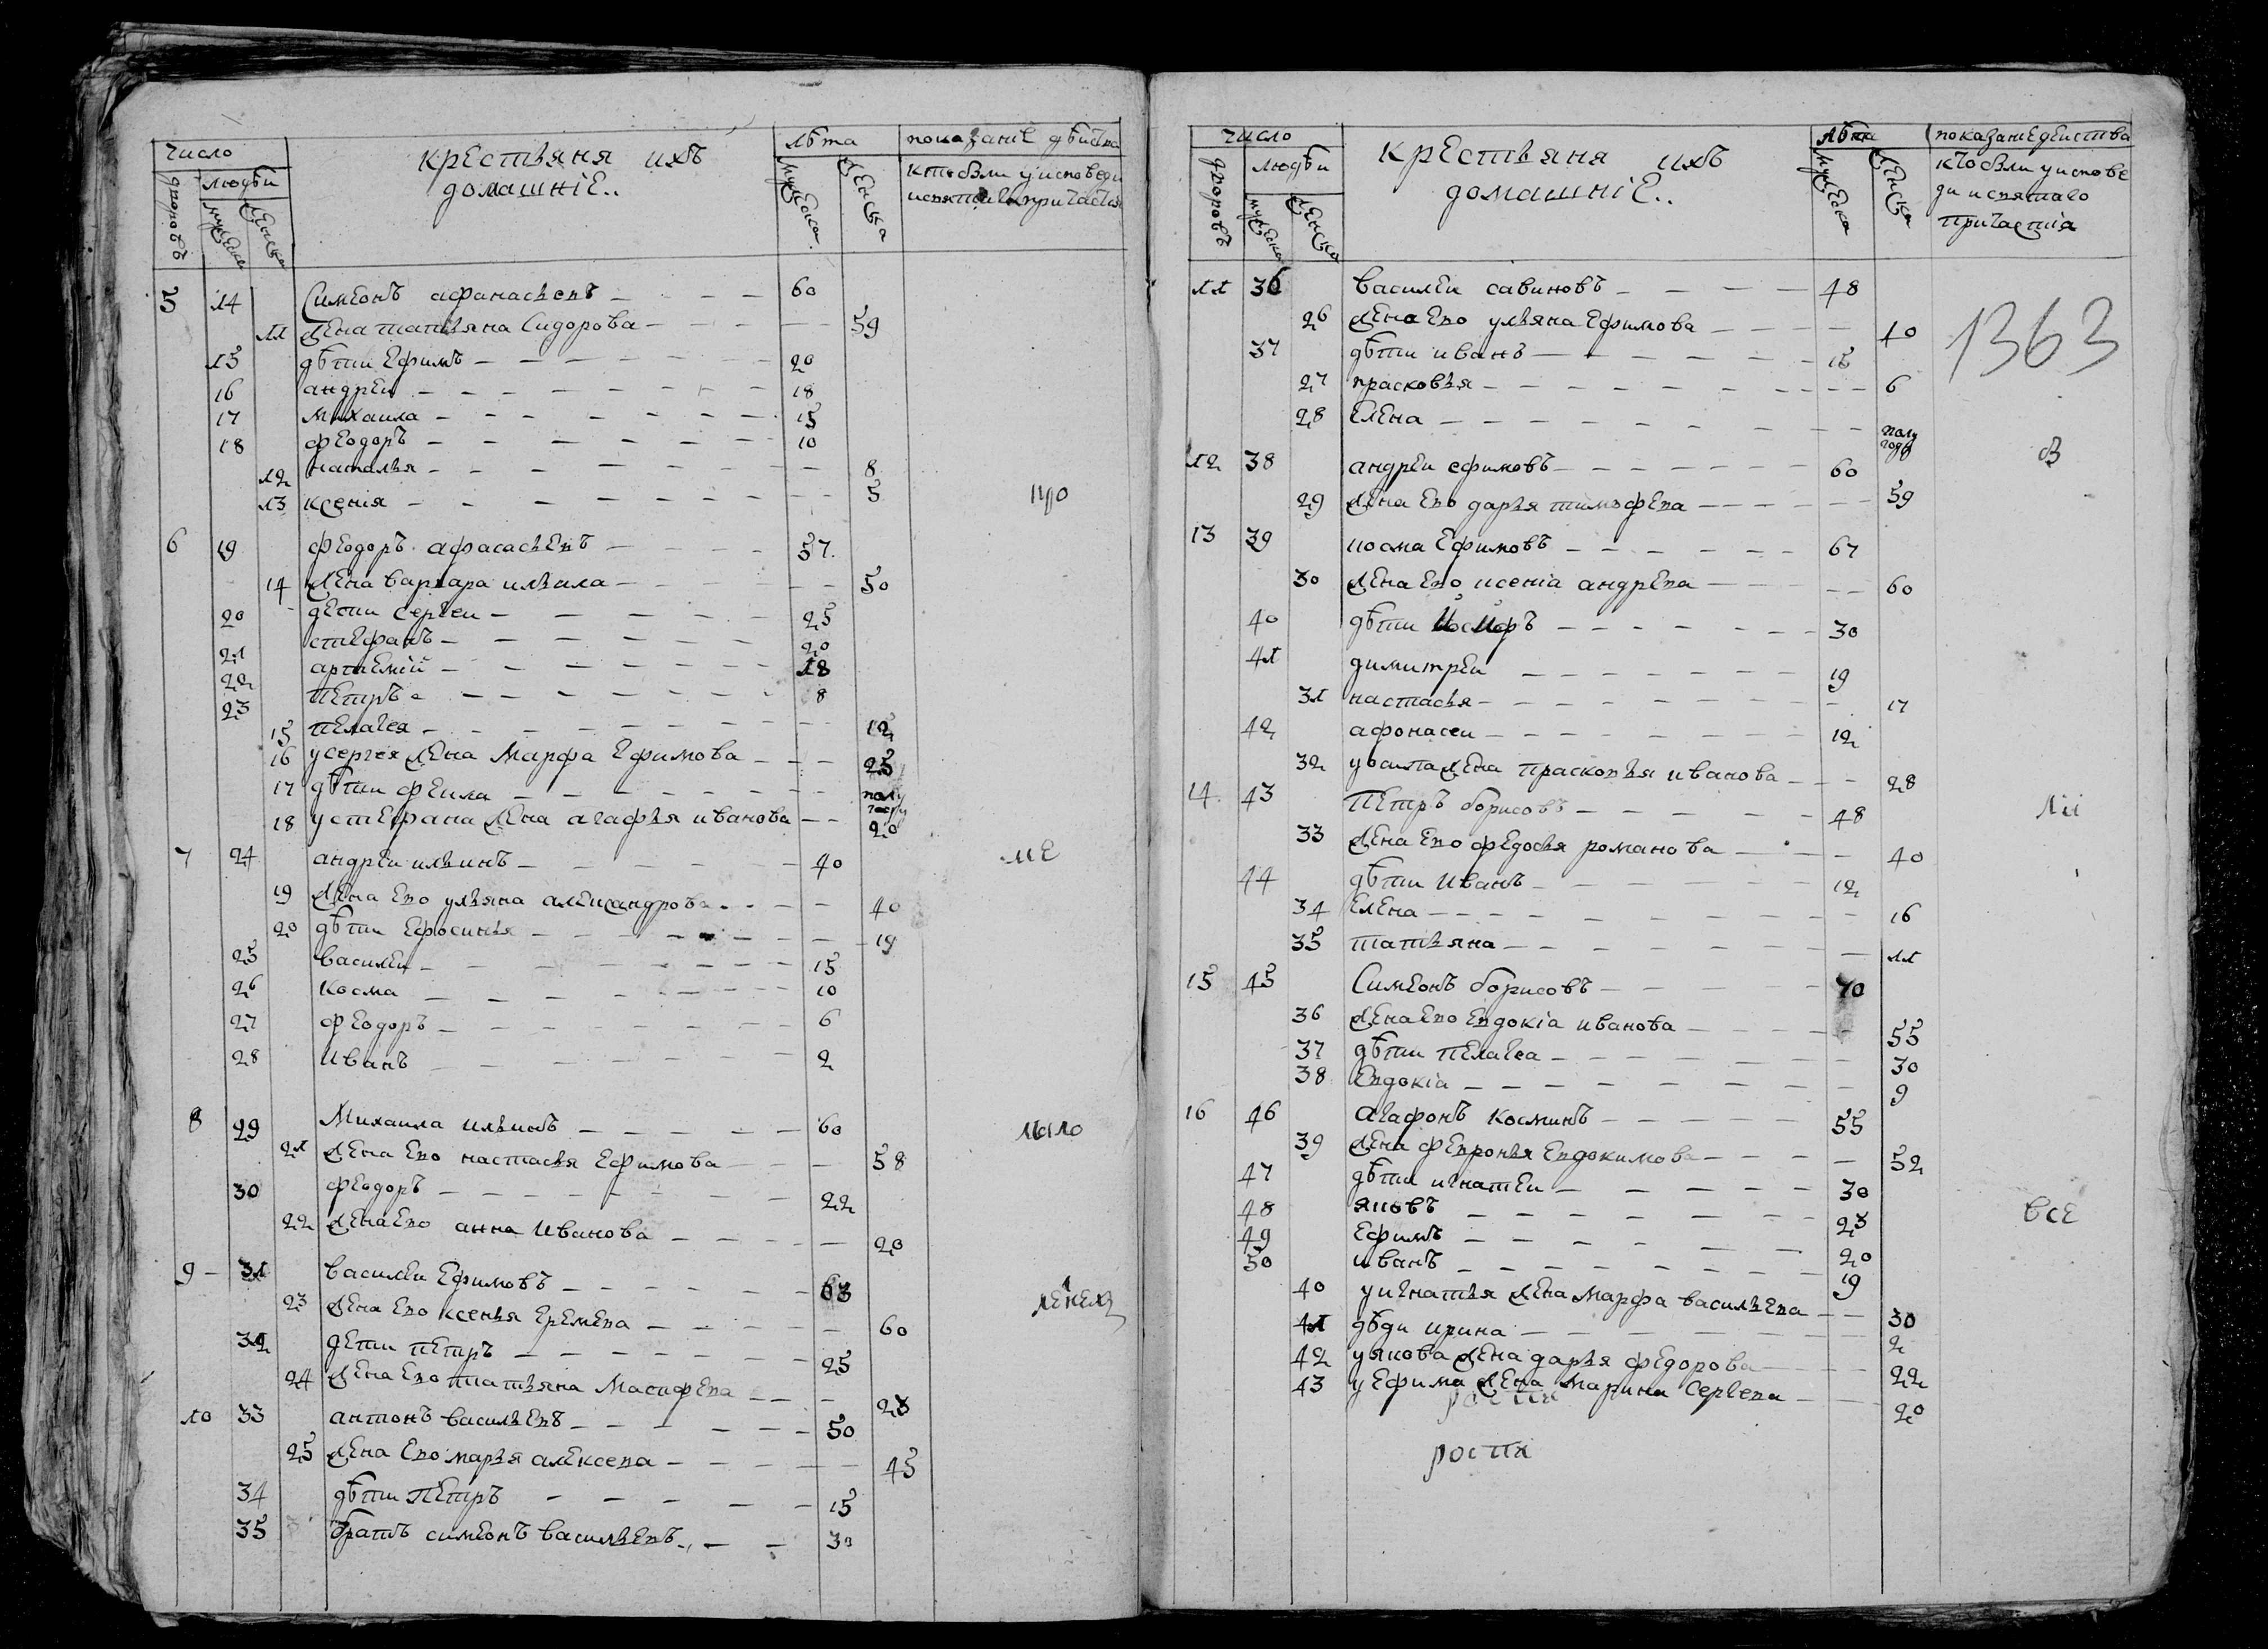 число
людѣи
дворовъ
мужеска
женска
крестьяня ихъ
домашнiе..
лѣта
мужеска
женска
показанiе дѣиства
кто были у исповеди
и святаго причастiя
5 14 Симеонъ афанасьевъ 60
11 жена татьяна Сидорова 59
15 дѣти Ефимъ 20
16 андреи 18
17 михаила 15
18 феодоръ 10
12 наталья 8
13 ксенiя 5
6 19 феодоръ афасасьевъ 57
14 жена варвара ильина 50
20 дети сергеи 25
21 стефанъ 20
22 артемiй 18
23 петръ 8
15 пелагея 12
16 у сергея жена Марфа Ефимова 25
17 дѣти фекла полу году
18 у стефана жена агафья иванова 20
7 24 андреи ильинъ 40
19 жена ево ульяна александрова 40
20 дѣти Ефросинья 19
25 василеи 15
26 косма 10
27 феодоръ 6
28 иванъ 2
8 29 Михаила ильинъ 60
21 жена ево настасья Ефимова 58
30 феодоръ 22
22 жена ево анна иванова 20
9 31 василеи Ефимовъ 63
23 жена ево ксенья Еремева 60
32 дети петръ 25
24 жена ево татьяна Матфева 23
10 33 антонъ васильевъ 50
25 жена ево марья алексева 45
34 дѣти петръ 15
35 братъ симеонъ васильевъ 30
число
людѣи
дворовъ
мужеска
женска
крестьяня ихъ
домашнiе..
лѣта
мужеска
женска
показанiе деиства
кто были у испове
ди и святаго
причастiя
1363
11 36 василеи савиновъ 48
26 жена ево ульяна Ефимова 40
37 дѣти иванъ 15
27 прасковья 6
28 елена полу году
12 38 андреи ефимовъ 60
29 жена ево дарья тимофева 59
13 39 косма Ефимовъ 67
30 жена ево ксенiа андрева 60
40 дѣти 30
41 димитреи 19
31 настасья 17
42 афонасеи 12
32 жена прасковья иванова 28
14 43 петръ борисовъ 48
33 жена ево федосья романова 40
44 дѣти иванъ 12
34 елена 16
35 татьяна 11
15 45 Симеонъ борисовъ 70
36 жена ево Евдокiа иванова 55
37 дѣти пелагеа 30
38 Евдокiа 9
16 46 агафонъ косминъ 55
39 жена февронья Евдокимова 52
47 дѣти игнатеи 30
48 яковъ 23
49 Ефимъ 20
50 иванъ 19
40 у игнатья жена марфа васильева 30
41 дѣди ирина 2
42 у якова жена дарья федорова 22
43 у Ефима жена марина Сергева 20
все